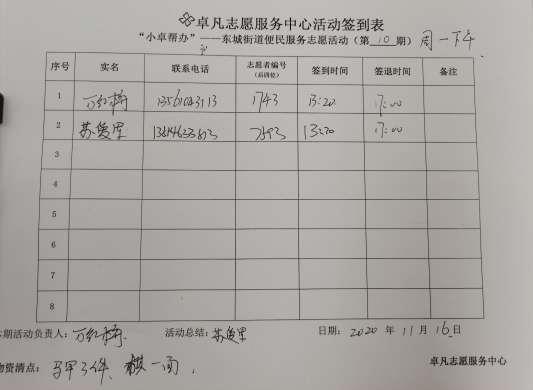 卓凡志愿服务中心活动签到表
“小卓帮办”——东城街道便民服务志愿活动（第 10 期） 周一下午
序号 实名 联系电话 志愿者编号（后四位） 签到时间 签退时间 备注
1 万红梅 1743 13:20 17:00
2 苏爱里 13:20 17:00
3
4
5
6
7
8
本期活动负责人：万红梅 活动总结：苏爱里 日期：2020 年 11 月 16 日
物资清点：马甲3件、 卓凡志愿服务中心